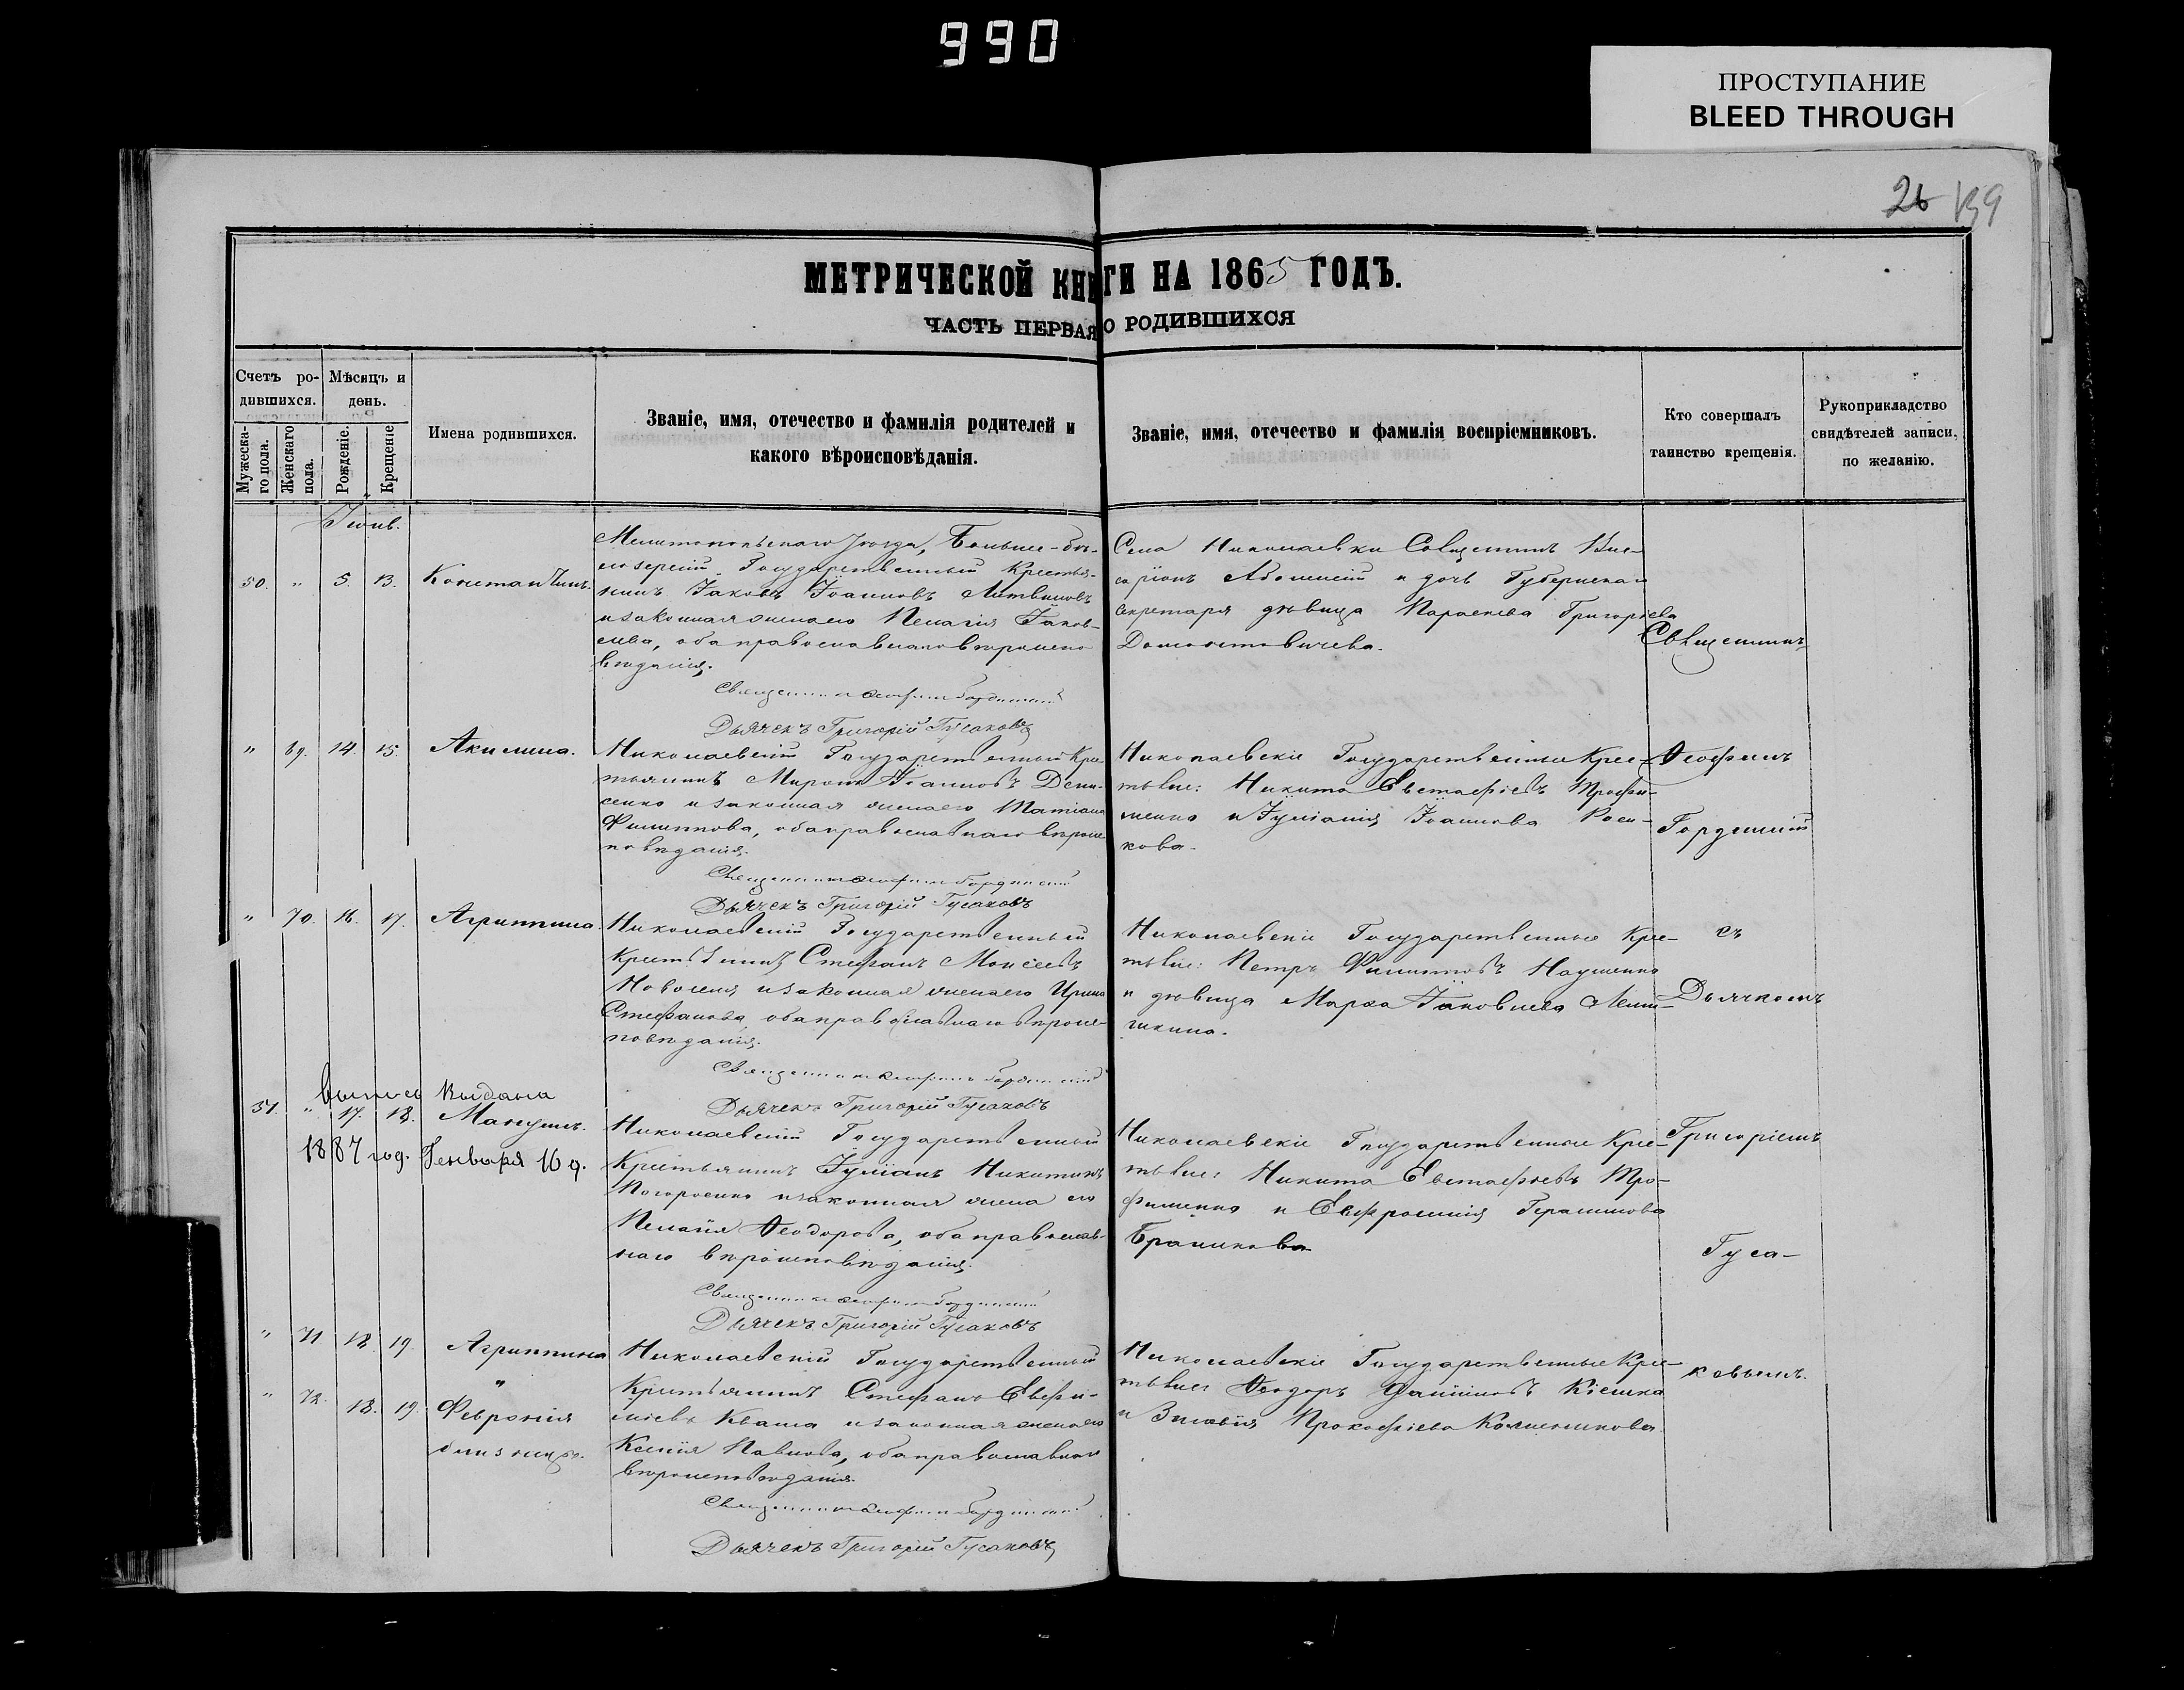 990
ПРОСТУПАНИЕ
BLEED THROUGH
26 139
МЕТРИЧЕСКОЙ КНИГИ НА 1865 ГОДЪ.
ЧАСТЬ ПЕРВАЯ О РОДИВШИХСЯ
Счетъ ро-
дившихся.
Мужеска-
го пола.
Женскаго
пола.
Мѣсяцъ и
день.
Рожденіе.
Крещеніе
Имена родившихся.
Званіе, имя, отечество и фамилія родителей и
какого вѣроисповѣданія.
Званіе, имя, отечество и фамилія воспріемниковъ.
Кто совершалъ
таинство крещенія.
Рукоприкладство
свидѣтелей записи,
по желанію.
Іюнь.
50. " 5. 13. Константинъ.
Мелитопольскаго уѣзда, Больше-бѣ-
лозерскій Государственный Крестья-
нинъ Іаковъ Іоанновъ Литвиновъ
и законная жена его Пелагія Іаков-
лева, оба православнаго вѣроиспо-
вѣданія.
Священникъ Ѳеофилъ Гордіевскій
Дьячекъ Григорій Гусаковъ
Села Николаевки Священникъ Вис-
саріонъ и дочь Губернскаго
Секретаря дѣвица Параскева Григоріева
Домонтовичева.
Священникъ
" 69. 14. 15. Акилина.
Николаевскій Государственный Кре-
стьянинъ Миронъ Іоанновъ Дени-
сенко и законная жена его Татіана
Филиппова, оба православнаго вѣроис-
повѣданія.
Дьячекъ Григорій Гусаковъ
Николаевскіе Государственные Кре-
стьяне: Никита Евстафіевъ Трофи-
менко и Іуліанія Іоаннова
кова.
Ѳеофилъ
" 70. 16. 17. Агриппина.
Николаевскій Государственный
Крестьянинъ Стефанъ Моисеевъ
и законная жена его Ирина
Стефанова, оба православнаго вѣроис-
повѣданія.
Дьячекъ Григорій Гусаковъ
Николаевскіе Государственные Кре-
стьяне: Петръ Филипповъ Науменко
и дѣвица Марѳа Іаковлева
съ
Дьячкомъ
выпись выдана
51. " 17. 18. Мануилъ.
1887 год. Генваря 16 д.
Николаевскій Государственный
Крестьянинъ Іуліанъ Никитинъ
и законная жена его
Пелагія Ѳеодорова, оба православ-
наго вѣроисповѣданія.
Дьячекъ Григорій Гусаковъ
Николаевскіе Государственные Кре-
стьяне: Никита Евстафіевъ Тро-
фименко и Евфросинія Герасимова
Браникова
Григоріемъ
Гуса-
" 71 18. 19. Агриппина
"
" 72. 18. 19. Февронія
близнецы.
Николаевскій Государственный
Крестьянинъ Стефанъ Евфи-
міевъ Кваша и законная жена его
Ксенія Павлова, оба православнаго
вѣроисповѣданія.
Дьячекъ Григорій Гусаковъ
Николаевскіе Государственные Кре-
стьяне: Ѳеодоръ Даніиловъ
и Прокофіева
ковымъ.